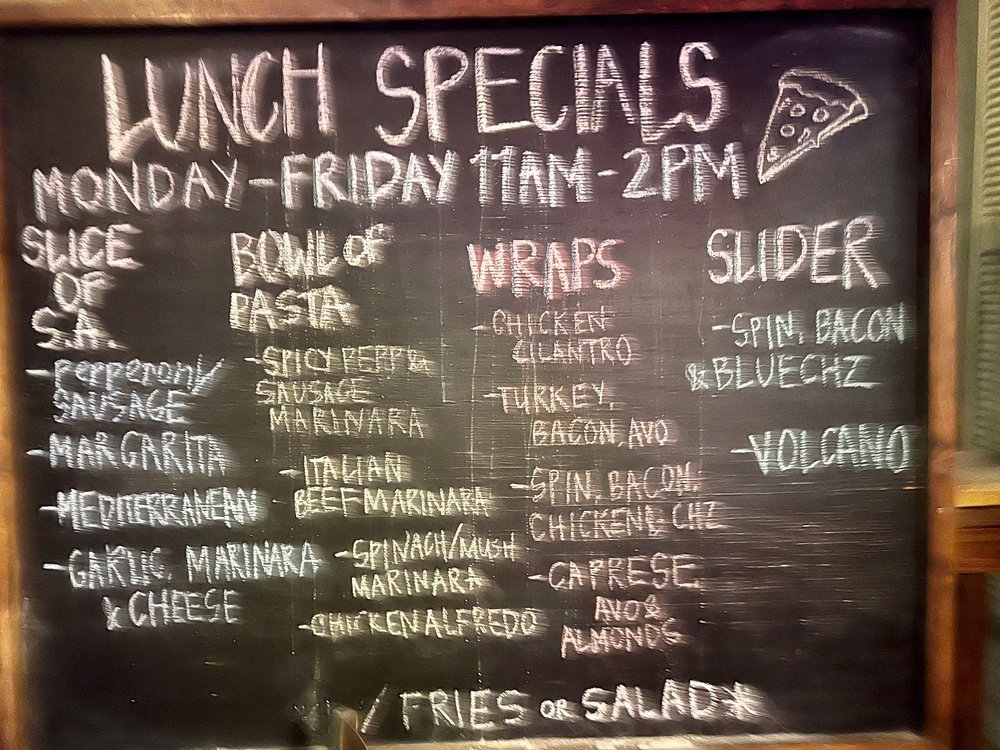 LUNCH SPECIALS
MONDAY-FRIDAY 11AM-2PM
SLICE
OF
S.A.
-PEPPERONI/
SAUSAGE
-MARGARITA
-MEDITERRANEAN
-GARLIC, MARINARA
& CHEESE
BOWL OF
PASTA
-SPICY PEPP &
SAUSAGE
MARINARA
-ITALIAN
BEEF MARINARA
-SPINACH/MUSH
MARINARA
-CHICKEN ALFREDO
WRAPS
-CHICKEN
CILANTRO
-TURKEY,
BACON, AVO
-SPIN, BACON,
CHICKEN & CHZ
-CAPRESE
AVO &
ALMONDS
SLIDER
-SPIN, BACON
& BLUECHZ
-VOLCANO
/ FRIES OR SALAD*